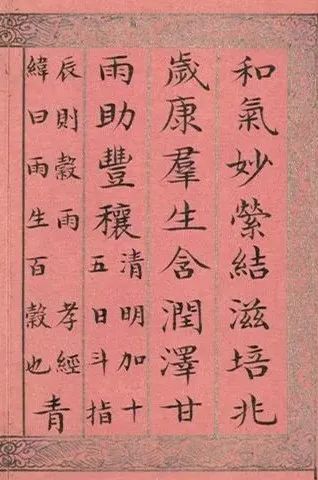 和氣妙縈結滋培兆
歲康羣生含潤澤甘
雨助豐穰
清明加十
五日斗指
辰則穀雨孝經
緯曰雨生百穀也
青